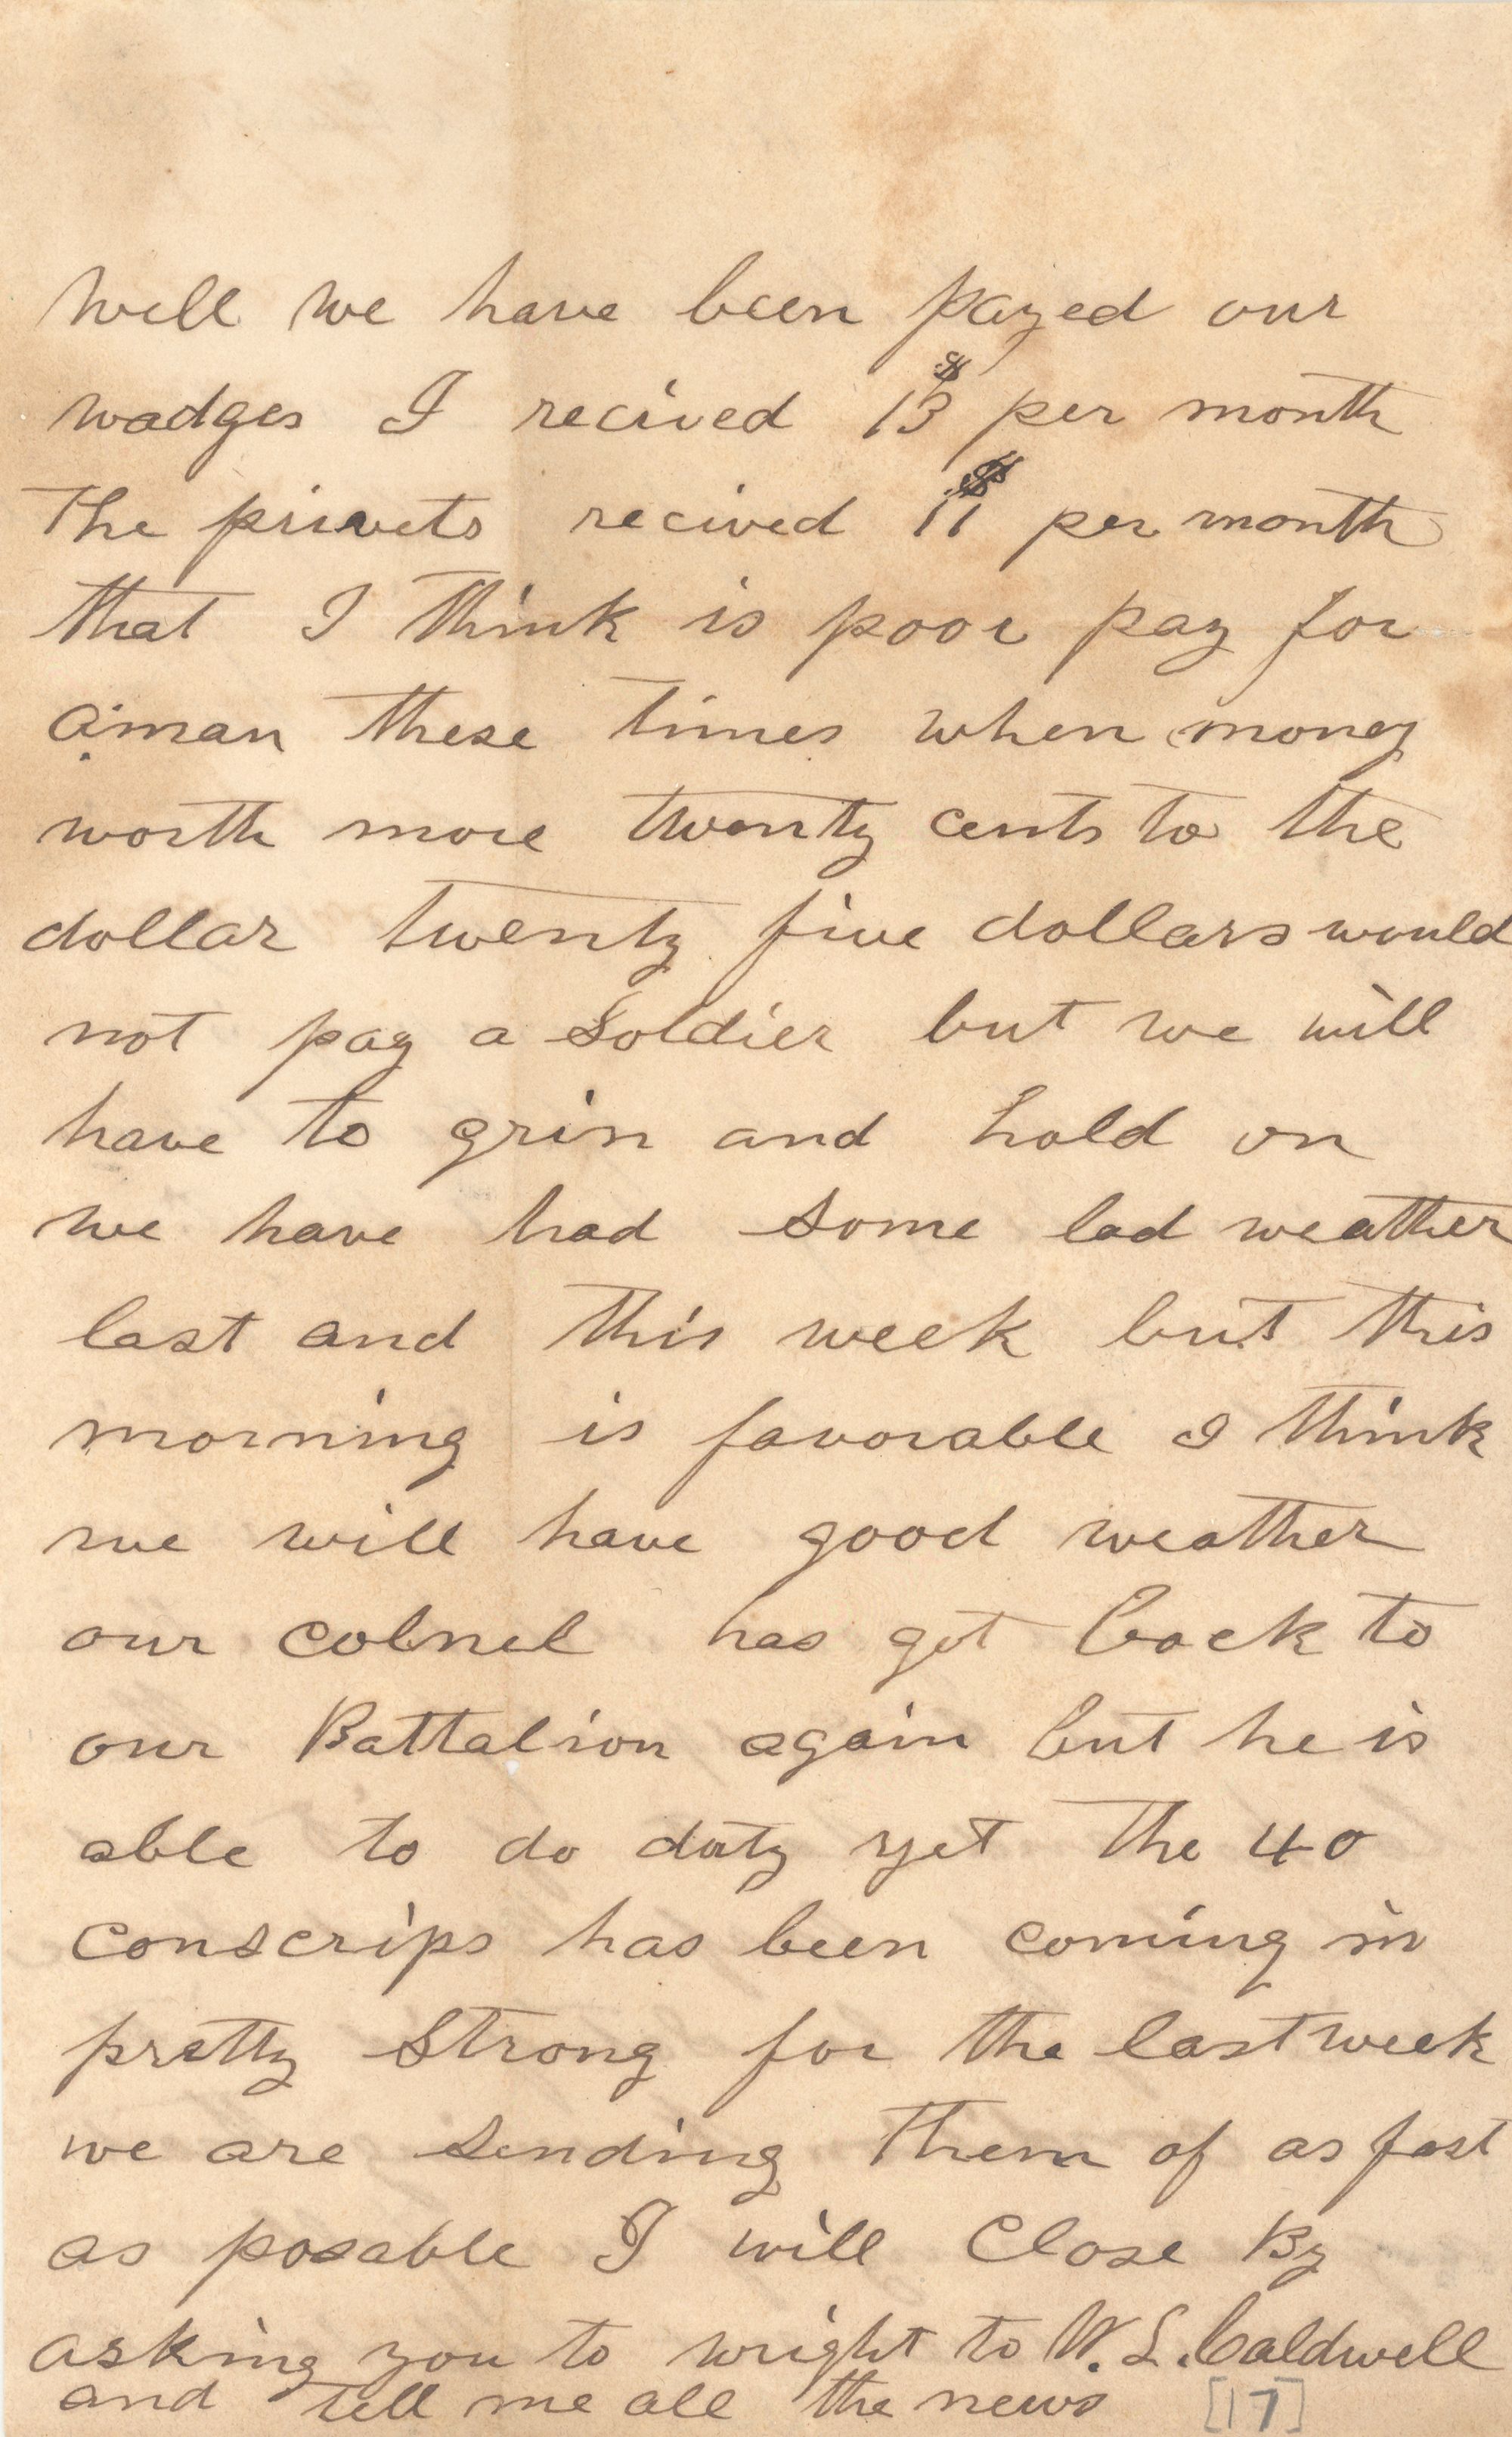 Well we have been payed our
wadges I recived 13$ per month
The privets recived 11$ per month
that I think is poor pay for
aman these times when money
worth more twenty cents to the
dollar twenty five dollars would
not pay a Soldier but we will
have to grin and hold on
we have had some bad weather
last and this week but this
morning is favorable I think
we will have good weather
our colnel has got back to
our Battalion again but he is
able to do duty yet The 40
conscrips has been coming in
pretty Strong for the last week
we are sending them of as fast
as posable I will Close By
asking you to wright to W. L. Caldwell
and tell me all the news [17]